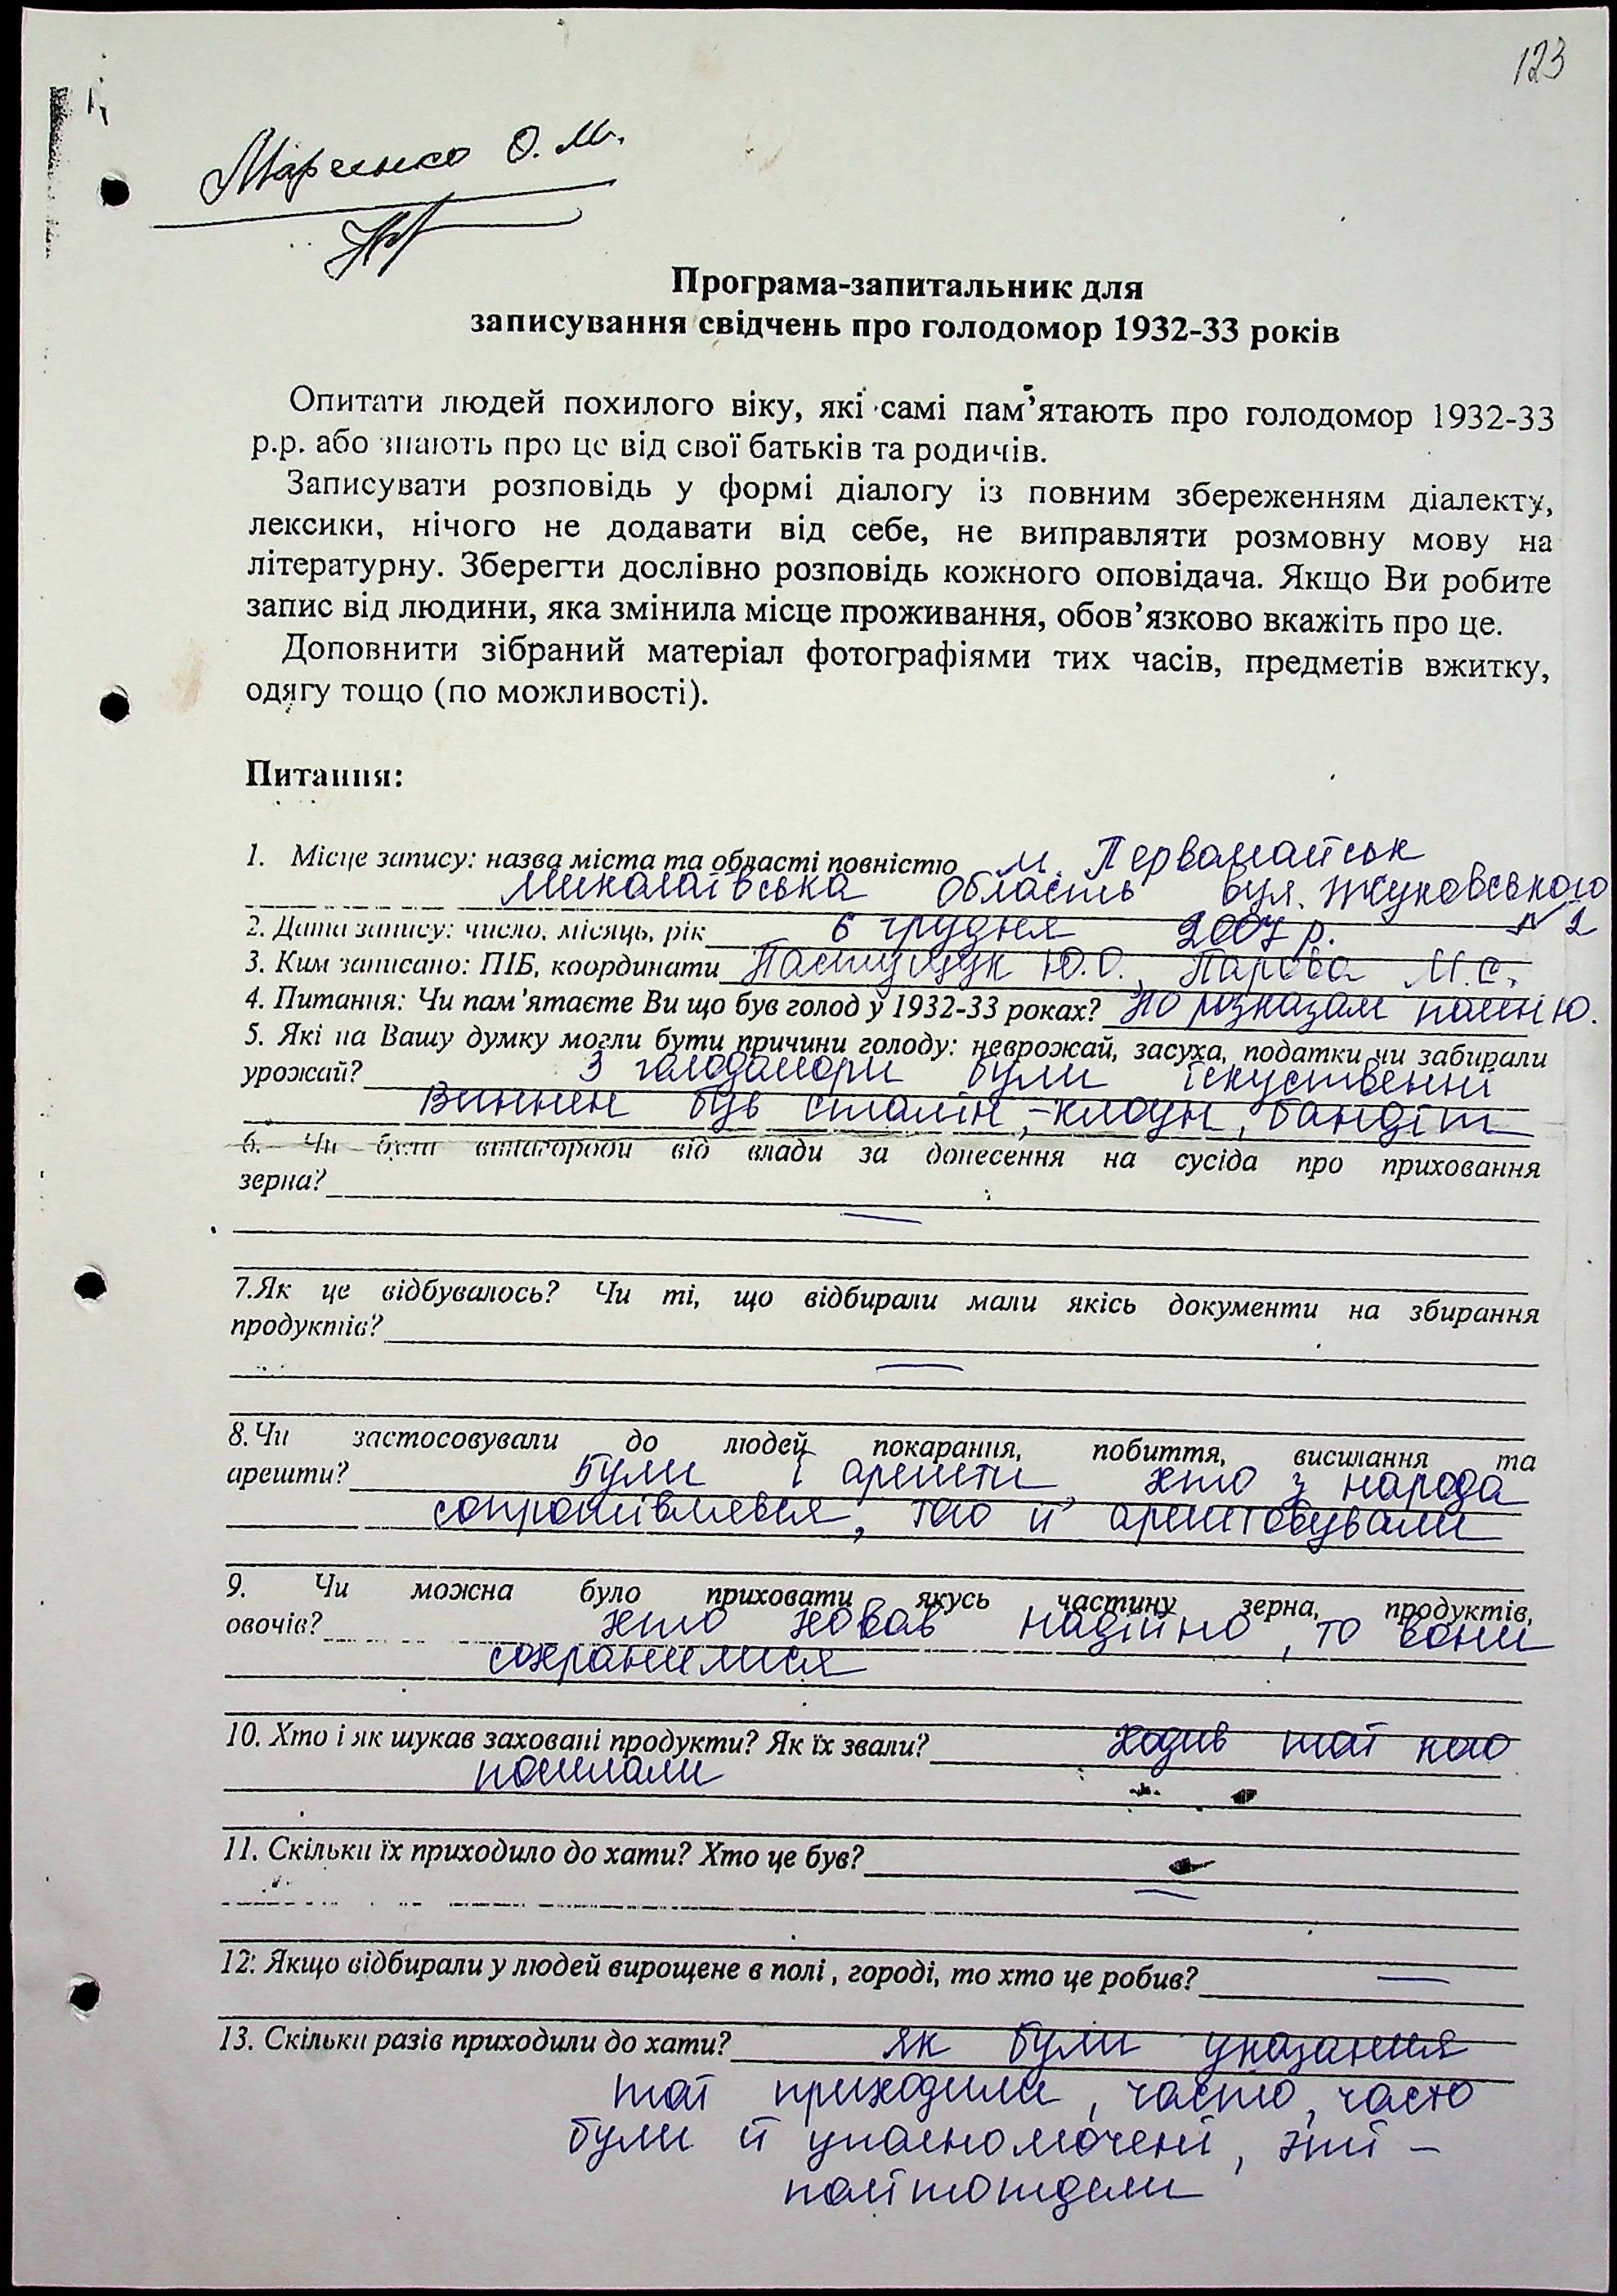 123
Марченко О. М.
Програма-запитальник для
записування свідчень про голодомор 1932-33 років
Опитати людей похилого віку, які самі пам'ятають про голодомор 1932-33
р.р. або знають про це від свої батьків та родичів.
Записувати розповідь у формі діалогу із повним збереженням діалекту,
лексики, нічого не додавати від себе, не виправляти розмовну мову на
літературну. Зберегти дослівно розповідь кожного оповідача. Якщо Ви робите
запис від людини, яка змінила місце проживання, обов'язково вкажіть про це.
Доповнити зібраний матеріал фотографіями тих часів, предметів вжитку,
одягу тощо (по можливості).
Питання:
1. Місце запису: назва міста та області повністю м. Первамайськ
Миколаївська область вул. Жуковського
№ 2
2. Дата запису: число, місяць, рік 6 грудня 2007 р.
3. Ким записано: ПІБ, координати Ю.О., М.С.
4. Питання: Чи пам'ятаєте Ви що був голод у 1932-33 роках? По розказам помню.
5. Які на Вашу думку могли бути причини голоду: неврожай, засуха, податки чи забирали
урожай? 3 голодомори були іскуственні
Виннен був сталін, - клоун, бандіт
6. Чи були винагороди від влади за донесення на сусіда про приховання
зерна? —
7.Як це відбувалось? Чи ті, що відбирали мали якісь документи на збирання
продуктів? —
8.Чи застосовували до людей покарання, побиття, висилання та
арешти? були і арешти, хто з народа
сопротівлявся, того й арештовували
9. Чи можна було приховати якусь частину зерна, продуктів,
овочів? хто ховав надійно, то вони
сохранилися
10. Хто і як шукав заховані продукти? Як їх звали? ходив той кого
посилали
11. Скільки їх приходило до хати? Хто це був?
—
12. Якщо відбирали у людей вирощене в полі, городі, то хто це робив? —
13. Скільки разів приходили до хати? як були указання
тоі приходили, часто, часто
були й упасномочені, эті -
політотдели